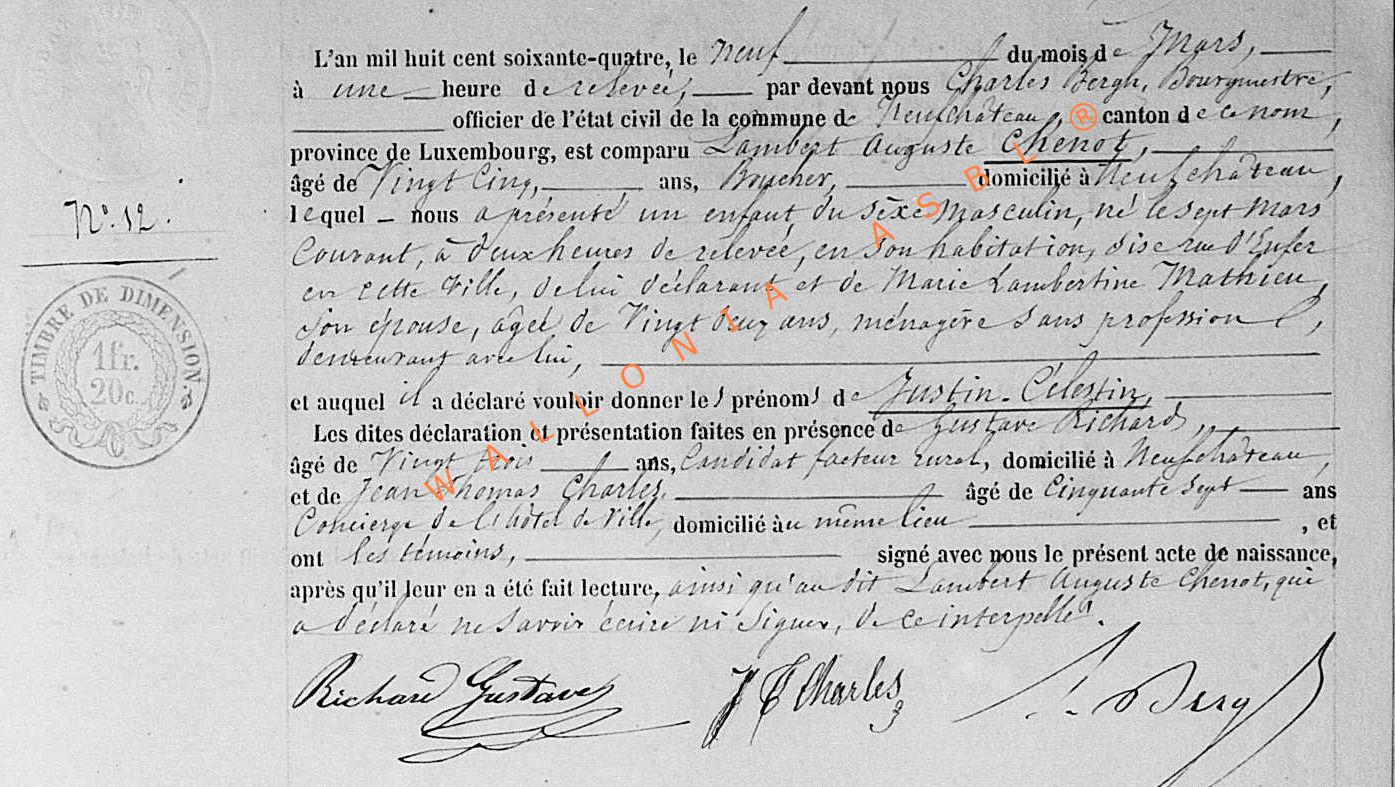 L'an mil huit cent soixante-quatre, le neuf du mois de Mars,
à une heure de relevée, par devant nous Charles Bergh, Bourgmestre,
officier de l'état civil de la commune de Neufchâteau, canton de ce nom,
province de Luxembourg, est comparu Lambert Auguste Chenot,
âgé de Vingt Cinq, ans, Boucher, domicilié à Neufchâteau,
lequel nous a présenté un enfant du sèxe Masculin, né le sept Mars
Courant, à deux heures de relevée, en son habitation, sise rue d'Enfer
N° 12.
en cette Ville, de lui déclarant et de Marie Lambertine Mathieu,
son épouse, âgée de Vingt deux ans, ménagère sans profession,
demeurant avec lui,
TIMBRE DE DIMENSION.
1fr.
20c.
et auquel il a déclaré vouloir donner les prénoms de Justin-Célestin,
Les dites déclaration et présentation faites en présence de Gustave Richard,
âgé de Vingt trois ans, Candidat facteur rural, domicilié à Neufchâteau,
et de Jean Thomas Charles, âgé de Cinquante sept ans
Concierge de l'hôtel de Ville, domicilié au même lieu, et
ont les témoins, signé avec nous le présent acte de naissance,
après qu'il leur en a été fait lecture, ainsi qu'au dit Lambert Auguste Chenot, qui
a déclaré ne savoir écrire ni signer, de ce interpellé.
Richard Gustave J T Charles C. Bergh
WALLONIA ASBL ®